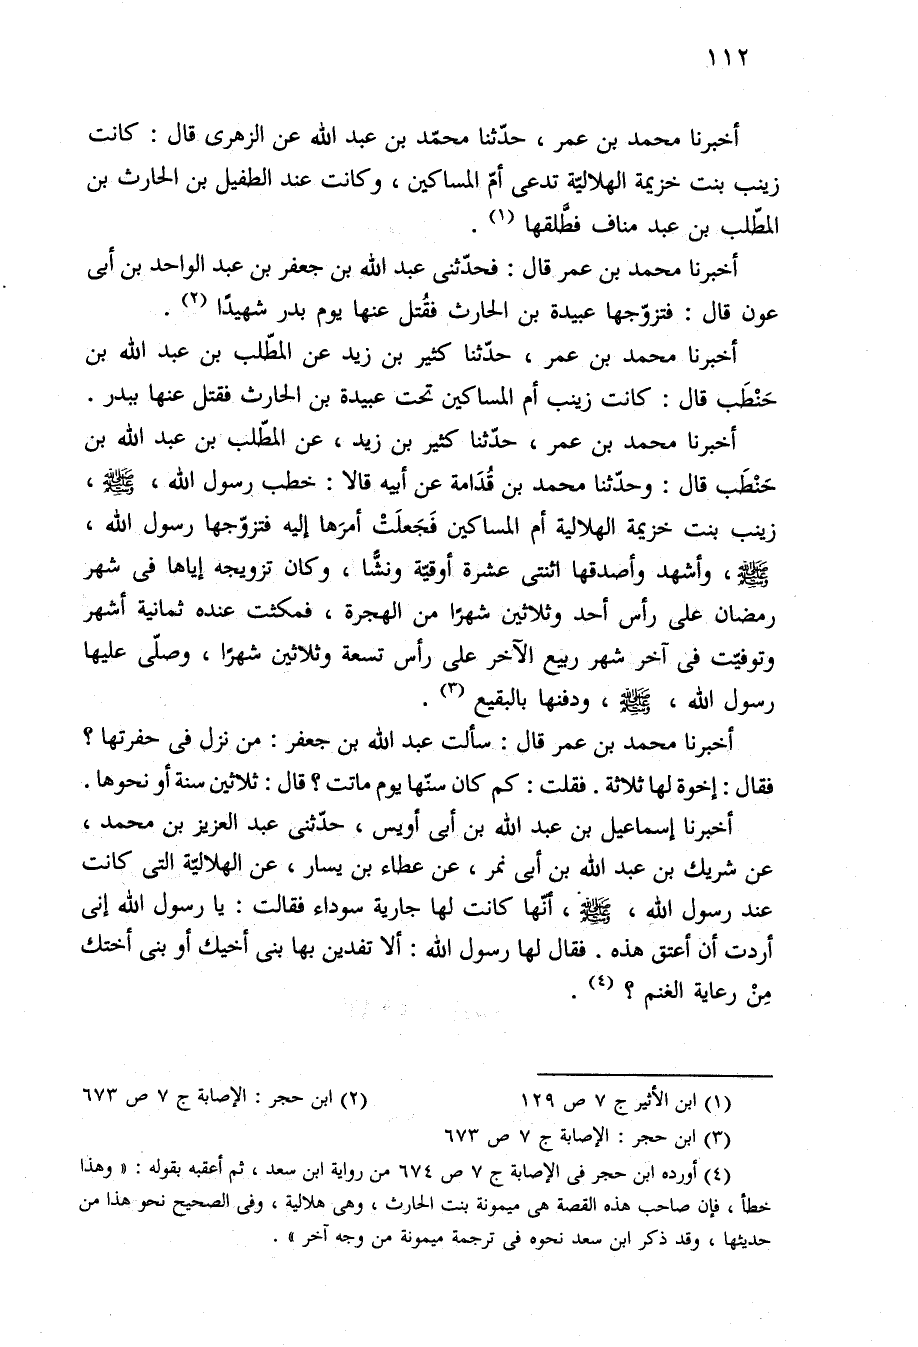 ١١٢
أخبرنا محمد بن عمر ، حدّثنا محمّد بن عبد الله عن الزهرى قال : كانت
زينب بنت خزيمة الهلاليّة تدعى أمّ المساكين ، وكانت عند الطفيل بن الحارث بن
المطّلب بن عبد مناف فطَّلقها (١) .
أخبرنا محمد بن عمر قال : فحدّثنى عبد الله بن جعفر بن عبد الواحد بن أبى
عون قال : فتزوّجها عبيدة بن الحارث فقُتل عنها يوم بدر شهيدًا (٢) .
أخبرنا محمد بن عمر ، حدّثنا كثير بن زيد عن المطّلب بن عبد الله بن
حَنْطَب قال : كانت زينب أم المساكين تحت عبيدة بن الحارث فقتل عنها ببدر .
أخبرنا محمد بن عمر ، حدّثنا كثير بن زيد ، عن المطّلب بن عبد الله بن
حَنْطَب قال : وحدّثنا محمد بن قُدَامة عن أبيه قالا : خطب رسول الله ، ﷺ ،
زينب بنت خزيمة الهلالية أم المساكين فَجَعلَتْ أمرَها إليه فتزوّجها رسول الله ،
ﷺ ، وأشهد وأصدقها اثنتى عشرة أوقيّة ونشًّا ، وكان تزويجه إياها فى شهر
رمضان على رأس أحد وثلاثين شهرًا من الهجرة ، فمكثت عنده ثمانية أشهر
وتوفيّت فى آخر شهر ربيع الآخر على رأس تسعة وثلاثين شهرًا ، وصلّى عليها
رسول الله ، ﷺ ، ودفنها بالبقيع (٣) .
أخبرنا محمد بن عمر قال : سألت عبد الله بن جعفر : من نزل فى حفرتها ؟
فقال : إخوة لها ثلاثة . فقلت : كم كان سنّها يوم ماتت ؟ قال : ثلاثين سنة أو نحوها .
أخبرنا إسماعيل بن عبد الله بن أبى أويس ، حدّثنى عبد العزيز بن محمد ،
عن شريك بن عبد الله بن أبى نمر ، عن عطاء بن يسار ، عن الهلاليّة التى كانت
عند رسول الله ، ﷺ ، أنّها كانت لها جارية سوداء فقالت : يا رسول الله إنى
أردت أن أعتق هذه . فقال لها رسول الله : ألا تفدين بها بنى أخيك أو بنى أختك
مِنْ رعاية الغنم ؟ (٤) .
(١) ابن الأثير ج ٧ ص ١٢٩ (٢) ابن حجر : الإصابة ج ٧ ص ٦٧٣
(٣) ابن حجر : الإصابة ج ٧ ص ٦٧٣
(٤) أورده ابن حجر فى الإصابة ج ٧ ص ٦٧٤ من رواية ابن سعد ، ثم أعقبه بقوله : « وهذا
خطأ ، فإن صاحب هذه القصة هى ميمونة بنت الحارث ، وهى هلالية ، وفى الصحيح نحو هذا من
حديثها ، وقد ذكر ابن سعد نحوه فى ترجمة ميمونة من وجه آخر » .